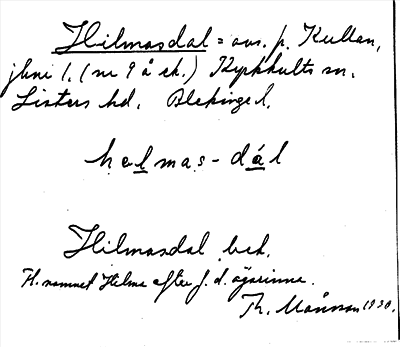 Hilmasdal = avs. p. Kullen,
jbni 1. (nr 9 å ek.) Kyrkhults sn.
Listers hd. Blekinge l.
helmas-dál
Hilmasdal bek.
Fl. namnet Hilma efter f. d. ägarinna.
Th. Månsson 1930.